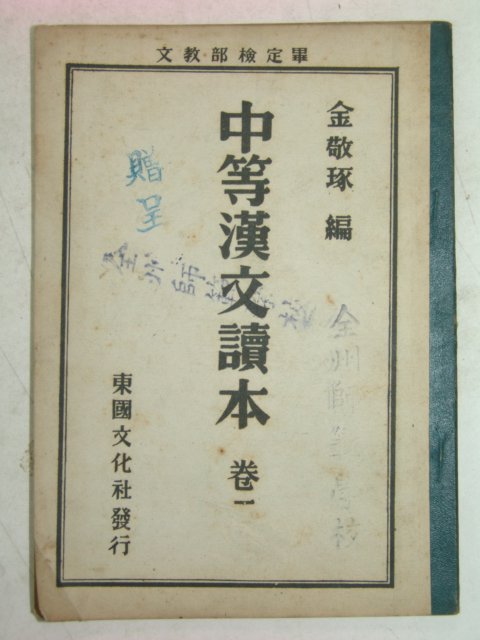 文教部檢定畢
金敬琢 編
中等漢文讀本 卷一
東國文化社發行
贈呈
全州師範學校
全州師範學校